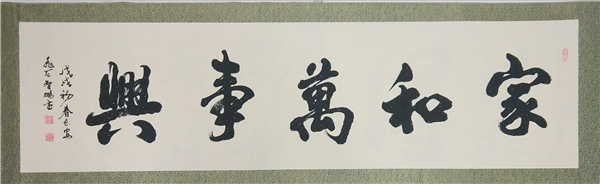 家和萬事興
戊戌初春長安